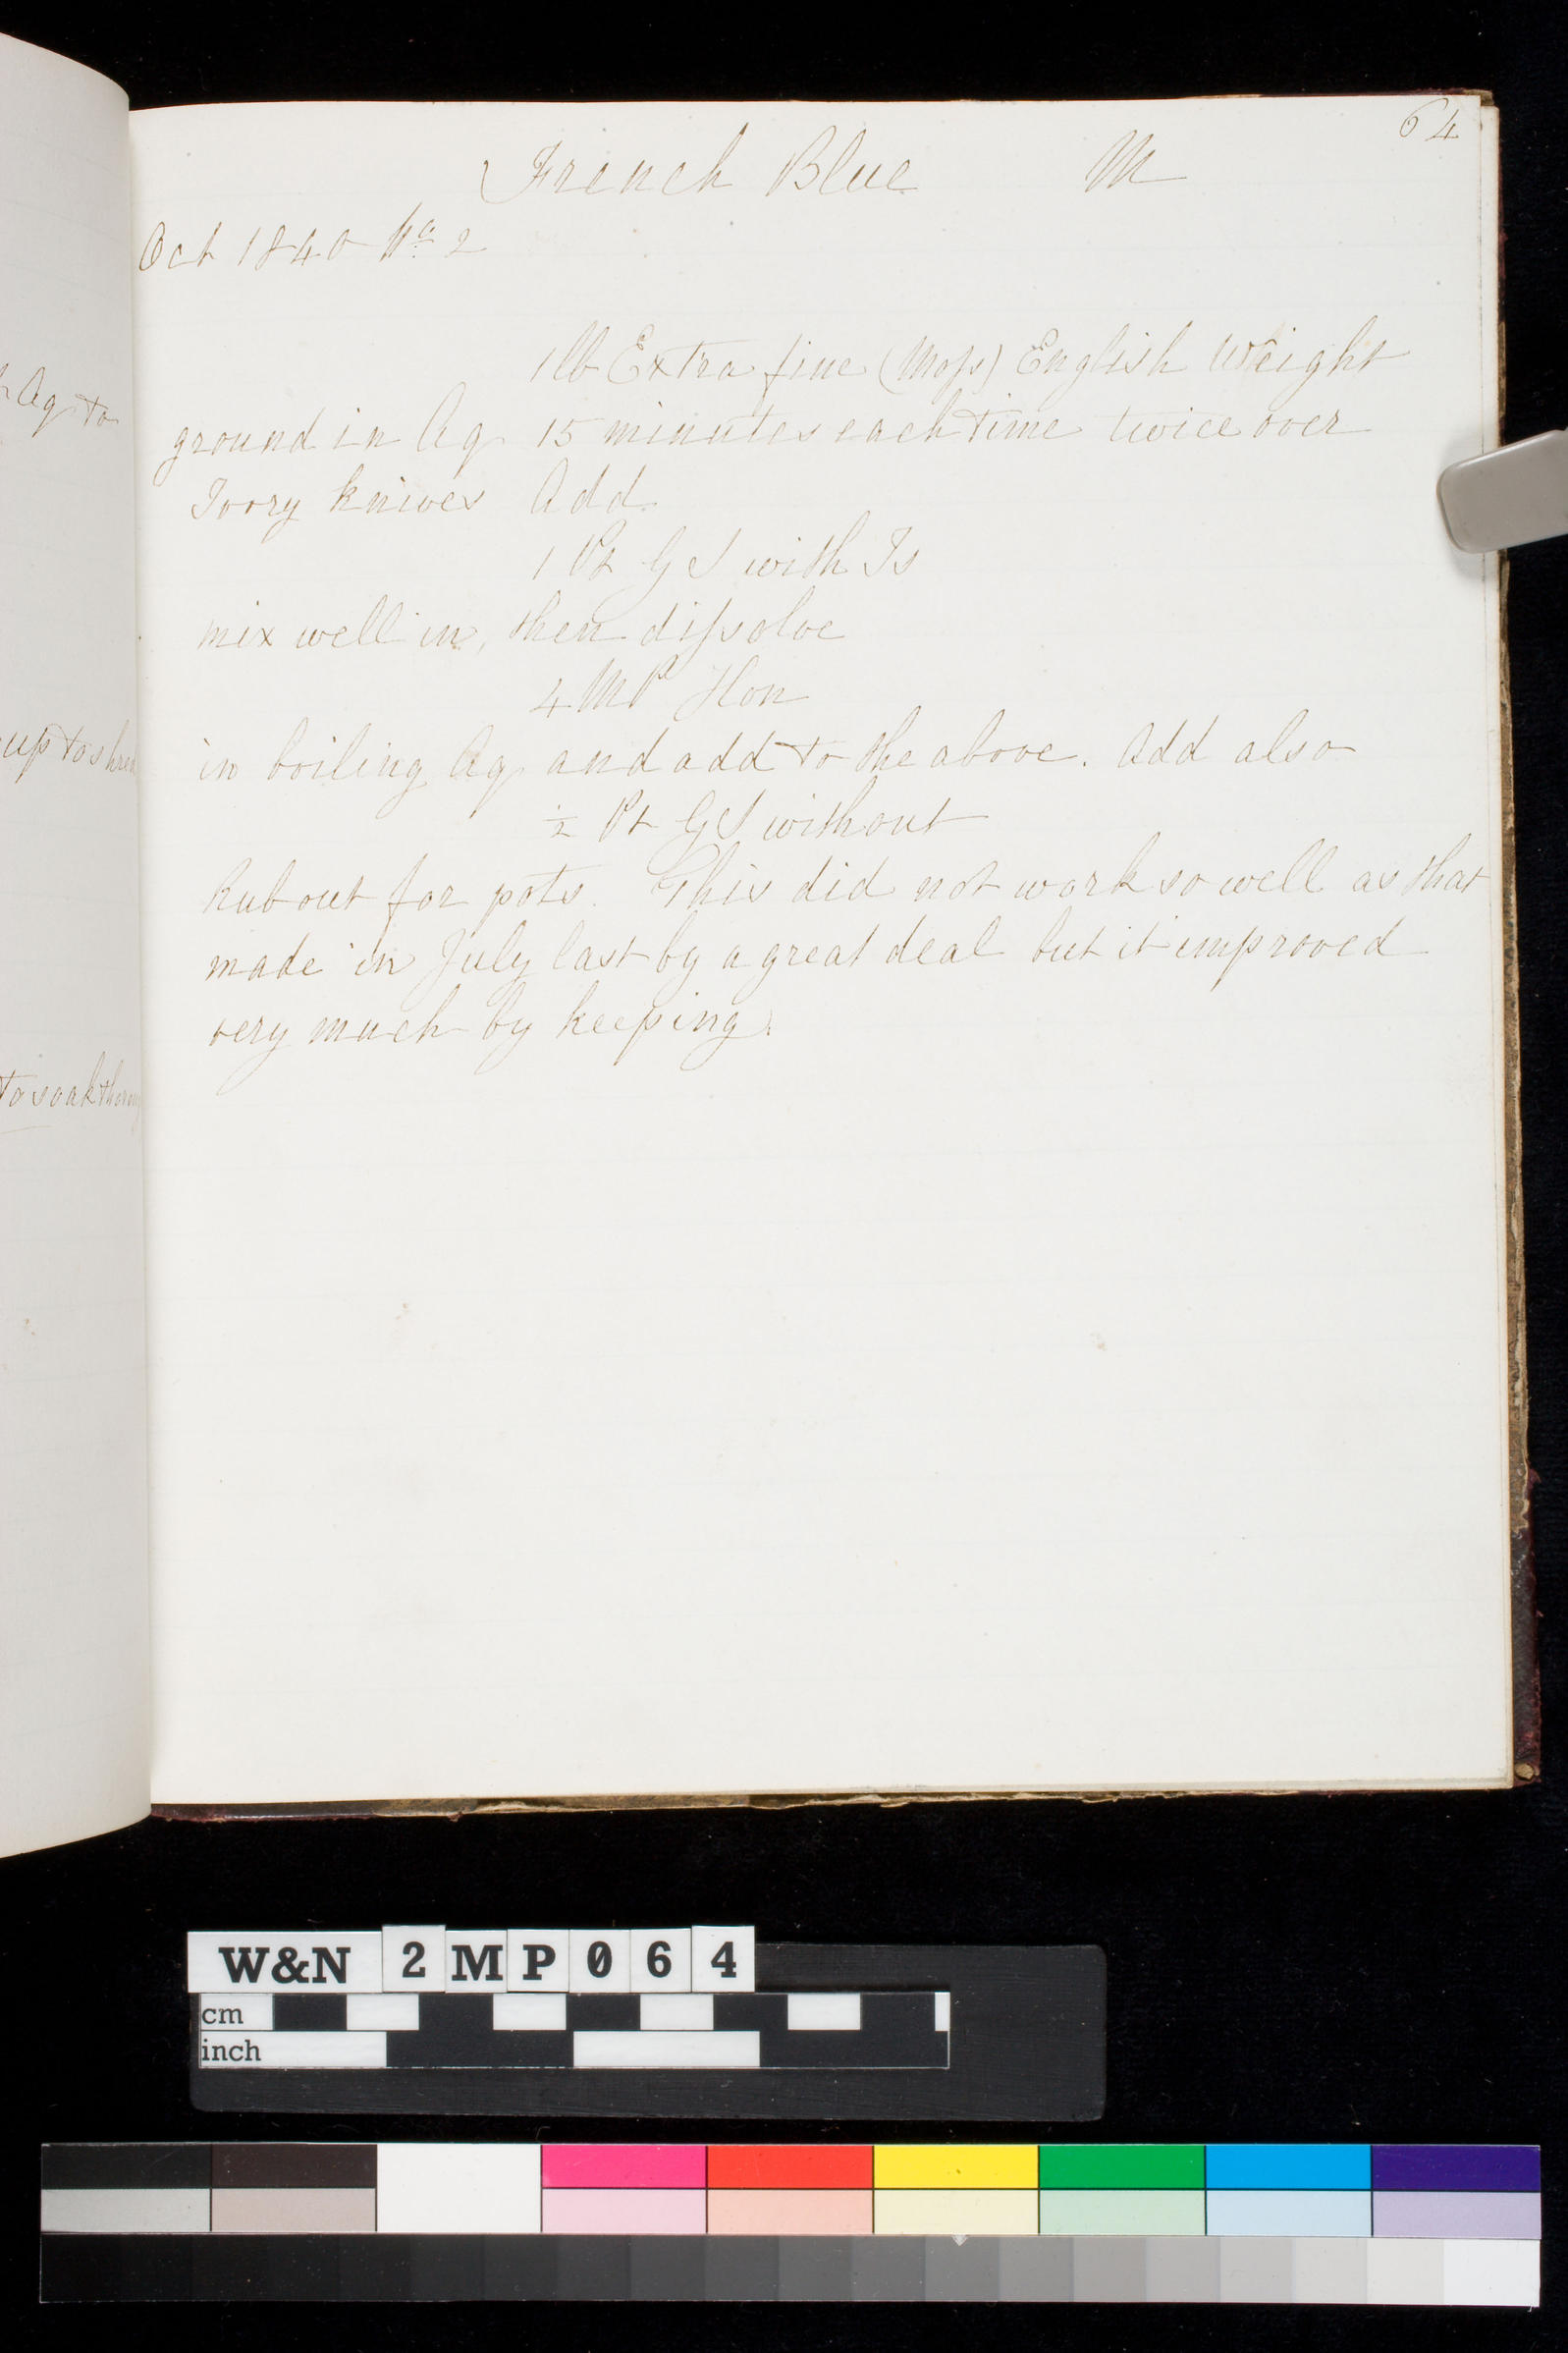 64
French Blue M
Oct 1840 No 2
1 lb Extra fine (Moſs) English Weight
ground in Aq 15 minutes each time twice over
Ivory knives Add
1 Pt G S with Is
mix well in, then diſsolve
4 MP Hon
in boiling Aq and add to the above. Add also
½ Pt G S without
Rub out for pots. This did not work so well as that
made in July last by a great deal but it improved
very much by keeping.
Aq to
up to
to soak
W&N 2MP064
cm
inch